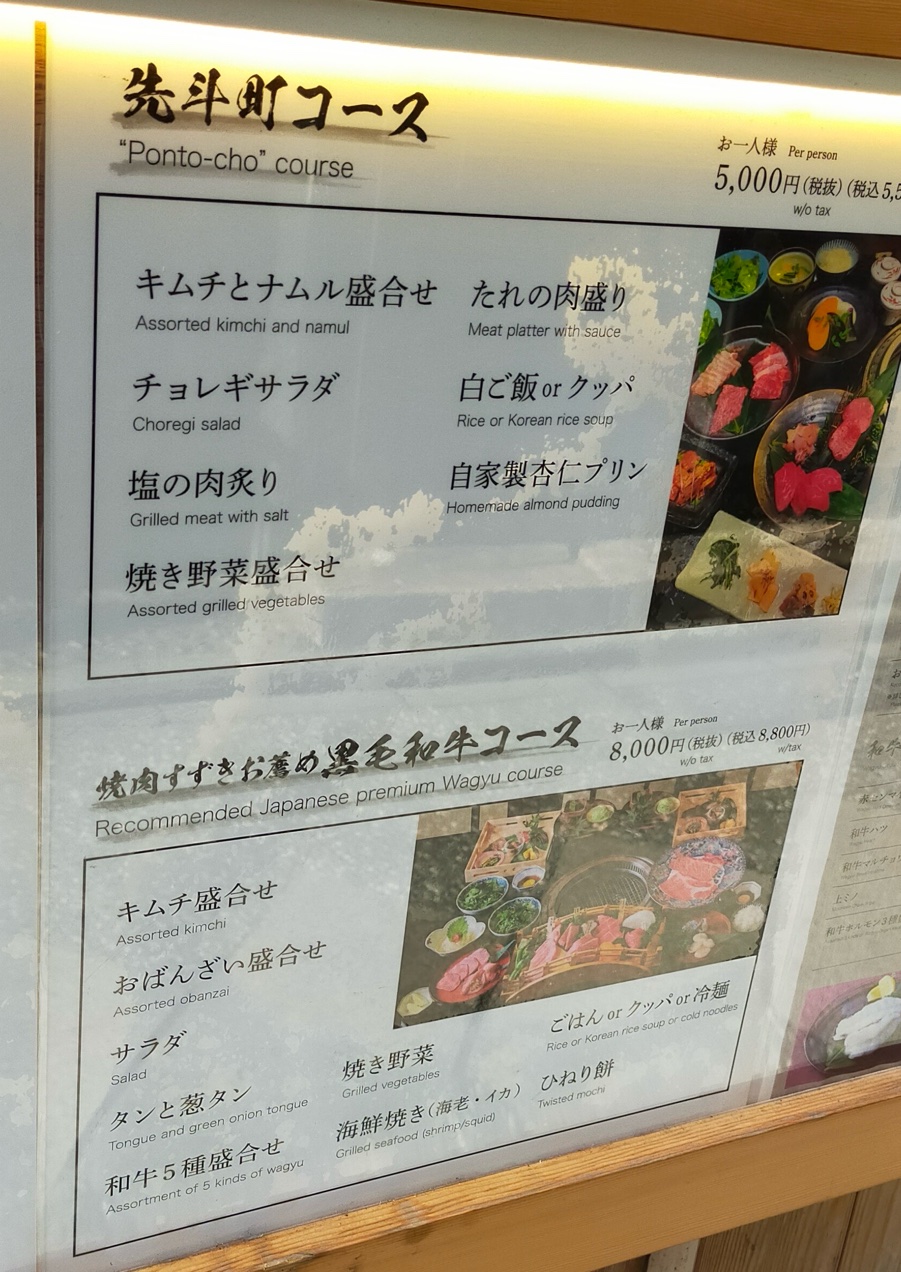 先斗町コース
"Ponto-cho" course
お一人様 Per person
5,000円(税抜)(税込5,5
w/o tax
キムチとナムル盛合せ
Assorted kimchi and namul
チョレギサラダ
Choregi salad
塩の肉炙り
Grilled meat with salt
焼き野菜盛合せ
Assorted grilled vegetables
たれの肉盛り
Meat platter with sauce
白ご飯 or クッパ
Rice or Korean rice soup
自家製杏仁プリン
Homemade almond pudding
焼肉すずきお薦め黒毛和牛コース
Recommended Japanese premium Wagyu course
お一人様 Per person
8,000円(税抜)(税込8,800円)
w/o tax w/tax
キムチ盛合せ
Assorted kimchi
おばんざい盛合せ
Assorted obanzai
サラダ
Salad
タンと葱タン
Tongue and green onion tongue
和牛5種盛合せ
Assortment of 5 kinds of wagyu
焼き野菜
Grilled vegetables
海鮮焼き(海老・イカ)
Grilled seafood (shrimp/squid)
ごはん or クッパ or 冷麺
Rice or Korean rice soup or cold noodles
ひねり餅
Twisted mochi
和牛ハツ
和牛マルチョウ
上ミノ
和牛ホルモン3種盛